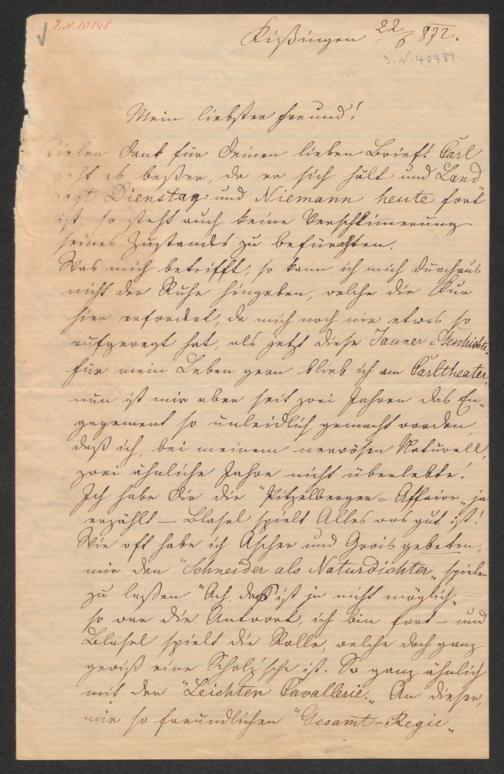 J.N. 10148
Kißingen 22/6 872.
J.N. 40481
Mein liebster Freund!
Vielen Dank für Deinen lieben Brief! Carl
geht es beßer, da er sich hält und Land
Dienstag und Niemann heute fort
ist, so steht auch keine Verschlimerung
seines Zustandes zu befürchten.
Was mich betrifft, so kann ich mich durchaus
nicht der Ruhe hingeben, welche die Kur
hier erfordert, da mich noch nie etwas so
aufgeregt hat, als jetzt diese Jauner-Geschichte.
Für mein Leben gern blieb ich am Carltheater,
nun ist mir aber seit zwei Jahren das En-
gagement so unleidlich gemacht worden,
daß ich, bei meinem nervösen Naturell,
zwei ähnliche Jahre nicht überlebte!
Ich habe Dir die "Pitzelberger-Affaire" ja
erzählt – Blasel spielt Alles was gut ist!
Wie oft habe ich Ascher und Grois gebeten,
mir den "Schneider als Naturdichter" spielen
zu laßen "Ach, das ist ja nicht möglich" –
so war die Antwort, ich bin fort – und
Blasel spielt die Rolle, welche doch ganz
gewiß eine Scholz'sche ist. So ganz ähnlich
mit der "Leichten Cavallerie." An dieser,
mir so freundlichen "Gesamt-Regie"